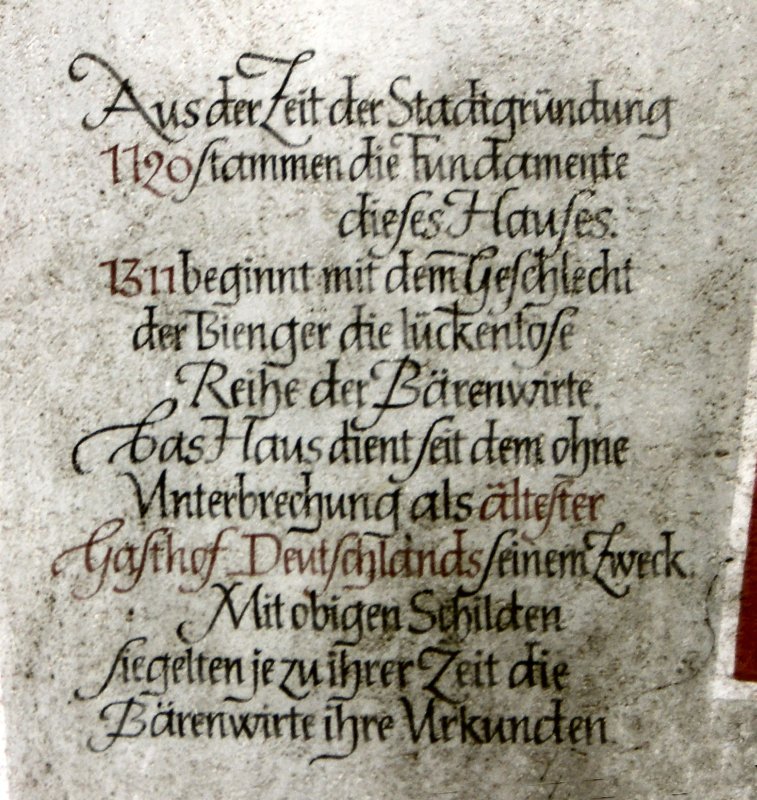 Aus der Zeit der Stadtgründung
1120 stammen die Fundamente
dieses Hauses.
1311 beginnt mit dem Geschlecht
der Bienger die lückenlose
Reihe der Bärenwirte.
Das Haus dient seit dem ohne
Unterbrechung als ältester
Gasthof Deutschlands seinem Zweck.
Mit obigen Schilden
siegelten je zu ihrer Zeit die
Bärenwirte ihre Urkunden.